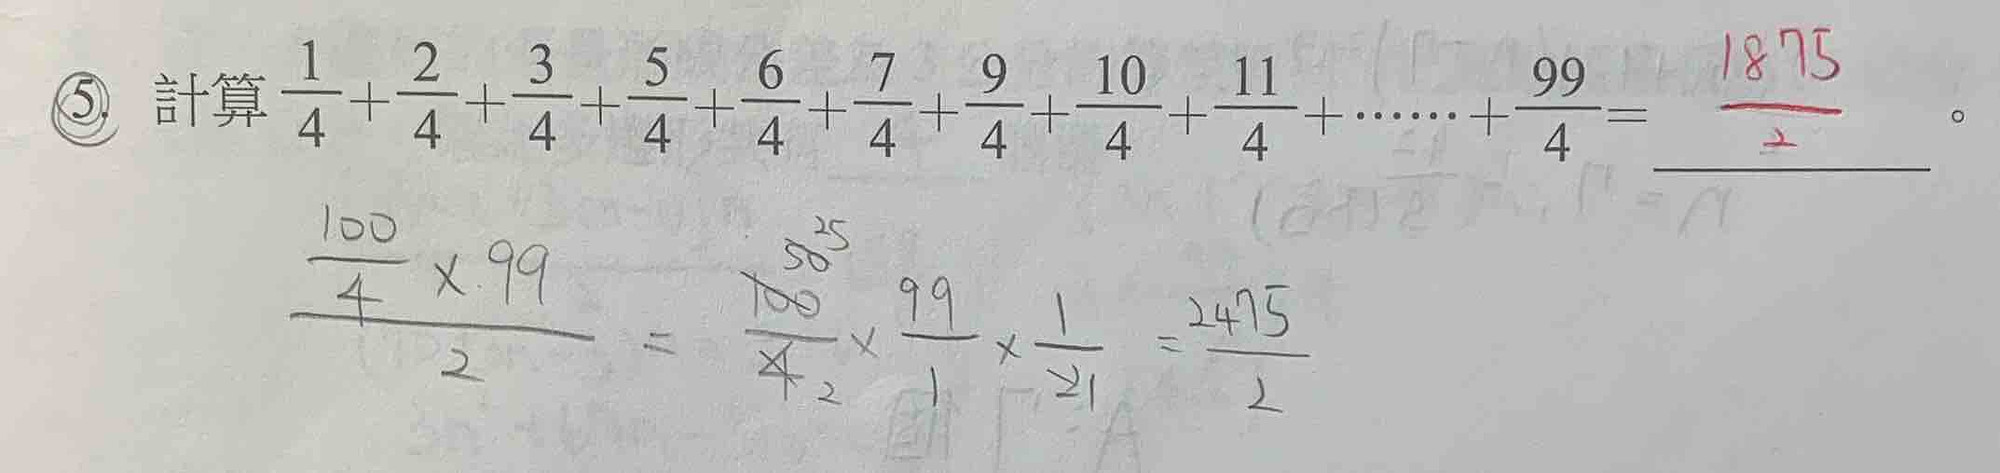 ⑤. 計算 1/4 + 2/4 + 3/4 + 5/4 + 6/4 + 7/4 + 9/4 + 10/4 + 11/4 + …… + 99/4 = 1875/2 。
(100/4 × 99)/2 = 100/4 50 25 2 × 99/1 × 1/2 1 = 2475/2